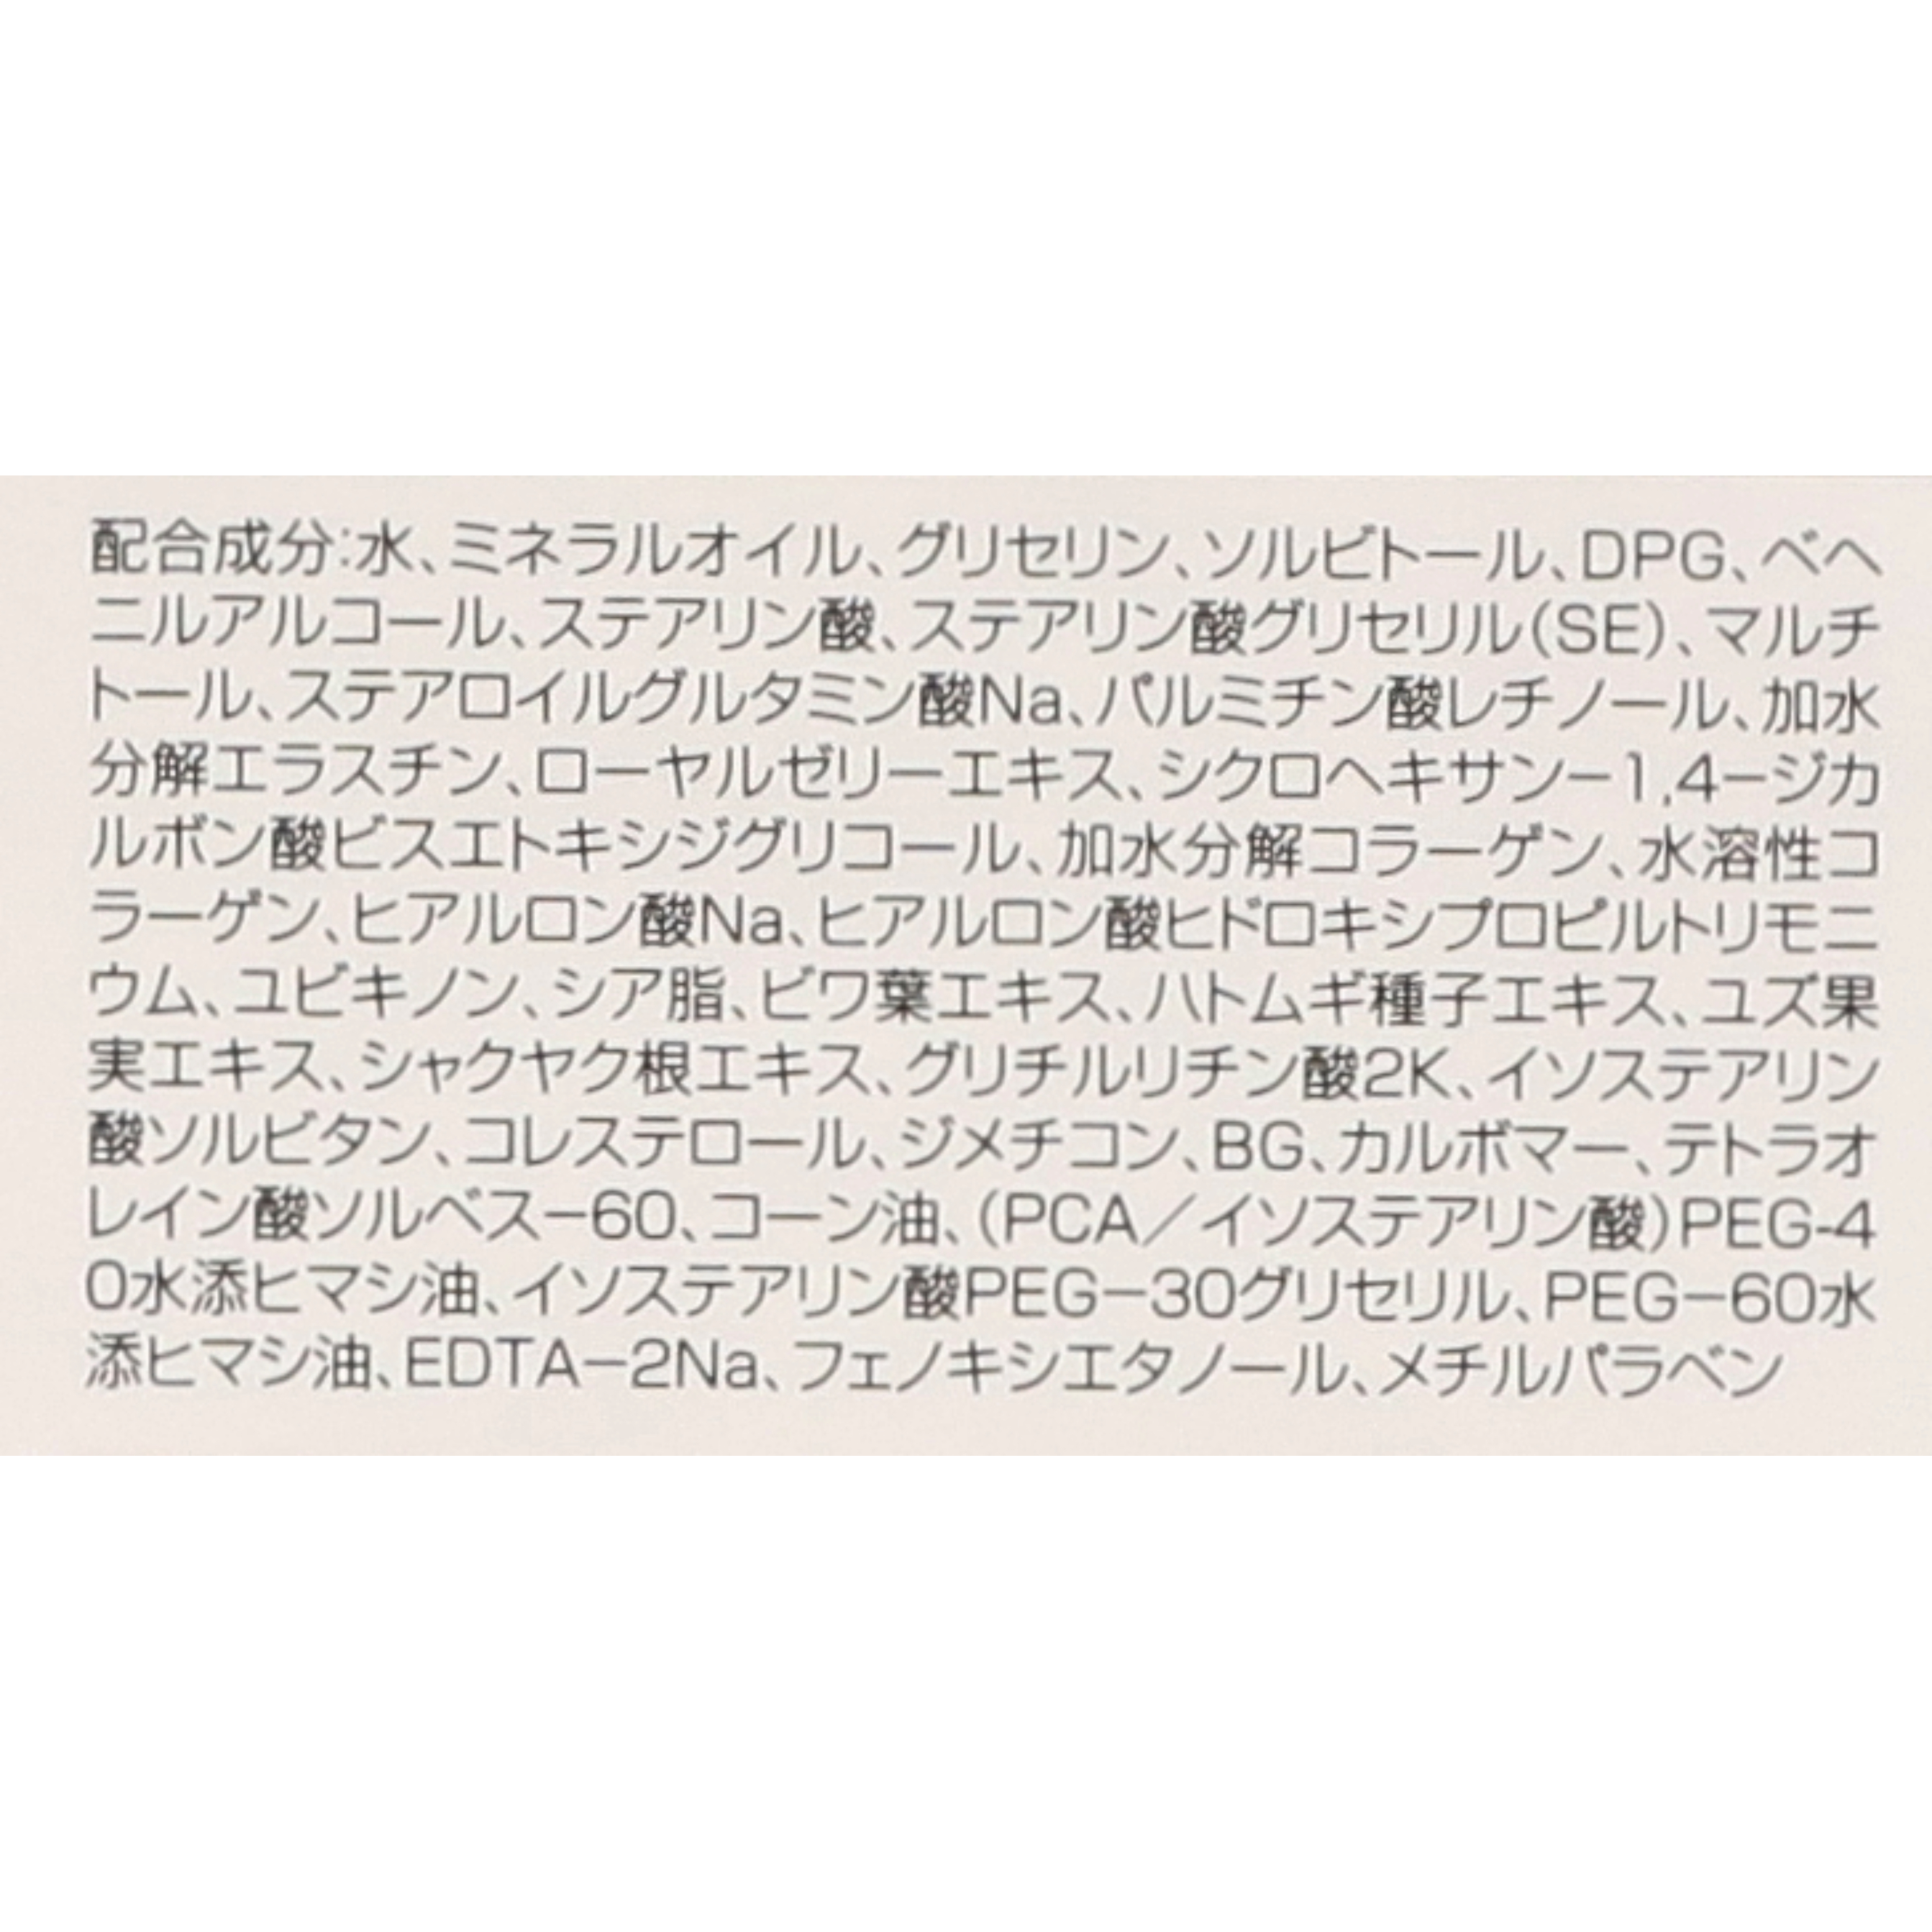 配合成分:水、ミネラルオイル、グリセリン、ソルビトール、DPG、ベヘ
ニルアルコール、ステアリン酸、ステアリン酸グリセリル(SE)、マルチ
トール、ステアロイルグルタミン酸Na、パルミチン酸レチノール、加水
分解エラスチン、ローヤルゼリーエキス、シクロヘキサン−1,4−ジカ
ルボン酸ビスエトキシジグリコール、加水分解コラーゲン、水溶性コ
ラーゲン、ヒアルロン酸Na、ヒアルロン酸ヒドロキシプロピルトリモニ
ウム、ユビキノン、シア脂、ビワ葉エキス、ハトムギ種子エキス、ユズ果
実エキス、シャクヤク根エキス、グリチルリチン酸2K、イソステアリン
酸ソルビタン、コレステロール、ジメチコン、BG、カルボマー、テトラオ
レイン酸ソルベス−60、コーン油、(PCA/イソステアリン酸)PEG-4
0水添ヒマシ油、イソステアリン酸PEG−30グリセリル、PEG−60水
添ヒマシ油、EDTA−2Na、フェノキシエタノール、メチルパラベン